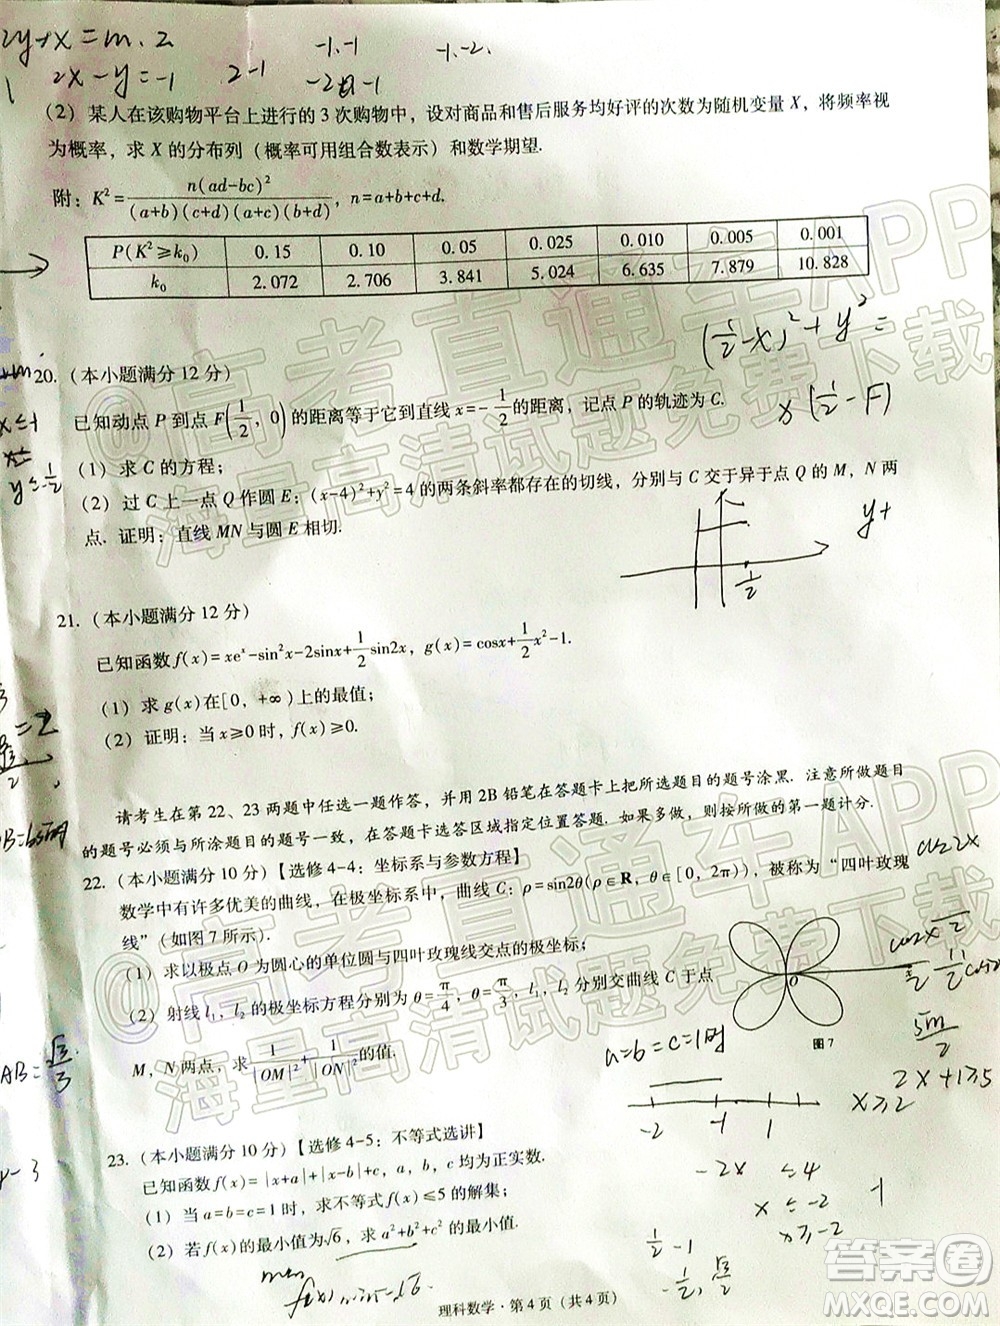 2y+x=m.2
2x-y=-1
2-1
-1.-1
-1.-2.
（2）某人在该购物平台上进行的3次购物中，设对商品和售后服务均好评的次数为随机变量X，将频率视
为概率，求X的分布列（概率可用组合数表示）和数学期望.
附：K²=n(ad-bc)²/((a+b)(c+d)(a+c)(b+d))，n=a+b+c+d.
P(K²≥k₀) 0.15 0.10 0.05 0.025 0.010 0.005 0.001
k₀ 2.072 2.706 3.841 5.024 6.635 7.879 10.828
(1/2-x)²+y²=
20.（本小题满分12分）
已知动点P到点F(1/2，0)的距离等于它到直线x=-1/2的距离，记点P的轨迹为C.
x(1/2-F)
（1）求C的方程；
（2）过C上一点Q作圆E：(x-4)²+y²=4的两条斜率都存在的切线，分别与C交于异于点Q的M，N两
点. 证明：直线MN与圆E相切.
y+
1/2
21.（本小题满分12分）
已知函数f(x)=xeˣ-sin²x-2sinx+1/2sin2x，g(x)=cosx+1/2x²-1.
（1）求g(x)在[0，+∞)上的最值；
（2）证明：当x≥0时，f(x)≥0.
请考生在第22、23两题中任选一题作答，并用2B铅笔在答题卡上把所选题目的题号涂黑. 注意所做题目
的题号必须与所涂题目的题号一致，在答题卡选答区域指定位置答题. 如果多做，则按所做的第一题计分.
22.（本小题满分10分）【选修4-4：坐标系与参数方程】
数学中有许多优美的曲线，在极坐标系中，曲线C：ρ=sin2θ(ρ∈R，θ∈[0，2π))，被称为“四叶玫瑰
线”（如图7所示）.
（1）求以极点O为圆心的单位圆与四叶玫瑰线交点的极坐标；
（2）射线l₁，l₂的极坐标方程分别为θ=π/4，θ=π/3，l₁，l₂分别交曲线C于点
M，N两点，求1/|OM|²+1/|ON|²的值.
O
图7
a=b=c=1时
2x+1≥5
x≥2
-2 -1 1
23.（本小题满分10分）【选修4-5：不等式选讲】
已知函数f(x)=|x+a|+|x-b|+c，a，b，c均为正实数.
（1）当a=b=c=1时，求不等式f(x)≤5的解集；
（2）若f(x)的最小值为√6，求a²+b²+c²的最小值.
-2x≤4
x≤-2
x≥-2
-1
1/2-1
理科数学·第4页（共4页）
@高考直通车APP
海量高清试题免费下载
@高考直通车APP
海量高清试题免费下载
答案圈
MXQE.COM